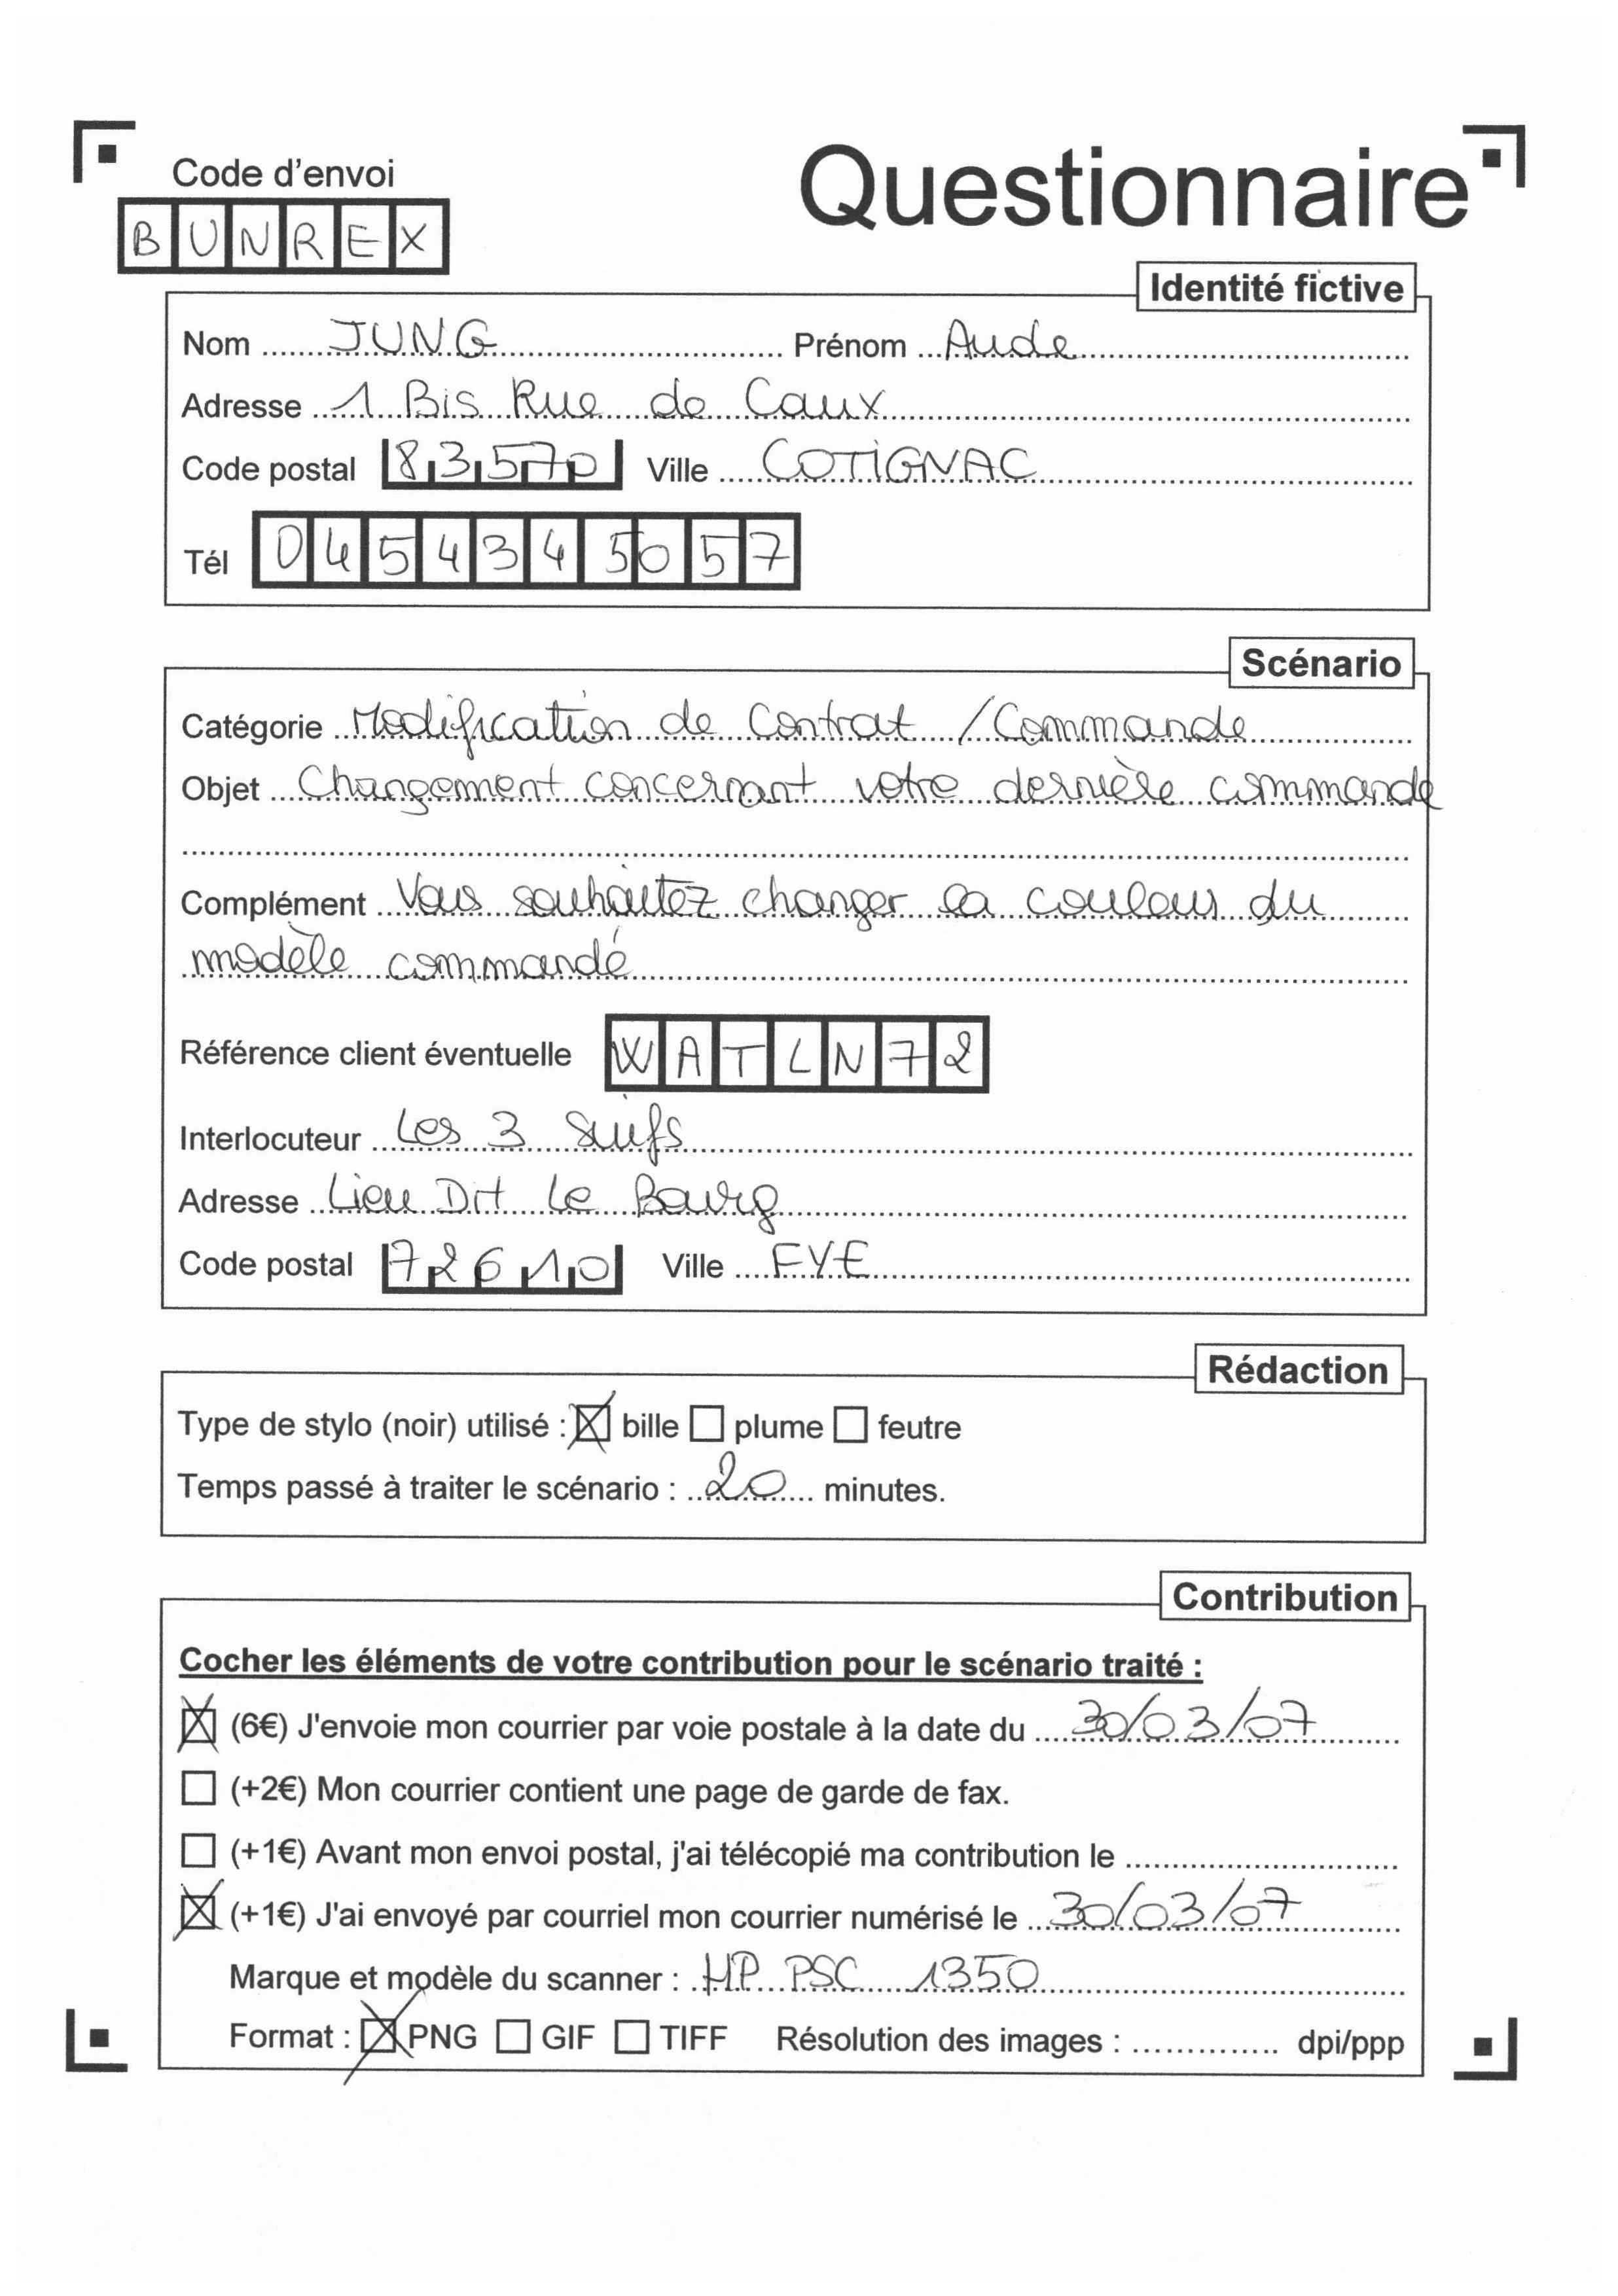 Code d'envoi
BUNREX
Questionnaire
Identité fictive
Nom JUNG Prénom Aude
Adresse 1 Bis Rue de Caux
Code postal 83570 Ville COTIGNAC
Tél 0454345057
Scénario
Catégorie Modification de Contrat / Commande
Objet Changement concernant votre dernière commande
Complément Vous souhaitez changer la couleur du
modèle commandé
Référence client éventuelle WATLN72
Interlocuteur Les 3 Suifs
Adresse Lieu Dit Le Bourg
Code postal 72610 Ville FYE
Rédaction
Type de stylo (noir) utilisé : bille plume feutre
Temps passé à traiter le scénario : 20 minutes.
Contribution
Cocher les éléments de votre contribution pour le scénario traité :
(6€) J'envoie mon courrier par voie postale à la date du 30/03/07
(+2€) Mon courrier contient une page de garde de fax.
(+1€) Avant mon envoi postal, j'ai télécopié ma contribution le
(+1€) J'ai envoyé par courriel mon courrier numérisé le 30/03/07
Marque et modèle du scanner : HP PSC 1350
Format : PNG GIF TIFF Résolution des images : dpi/ppp